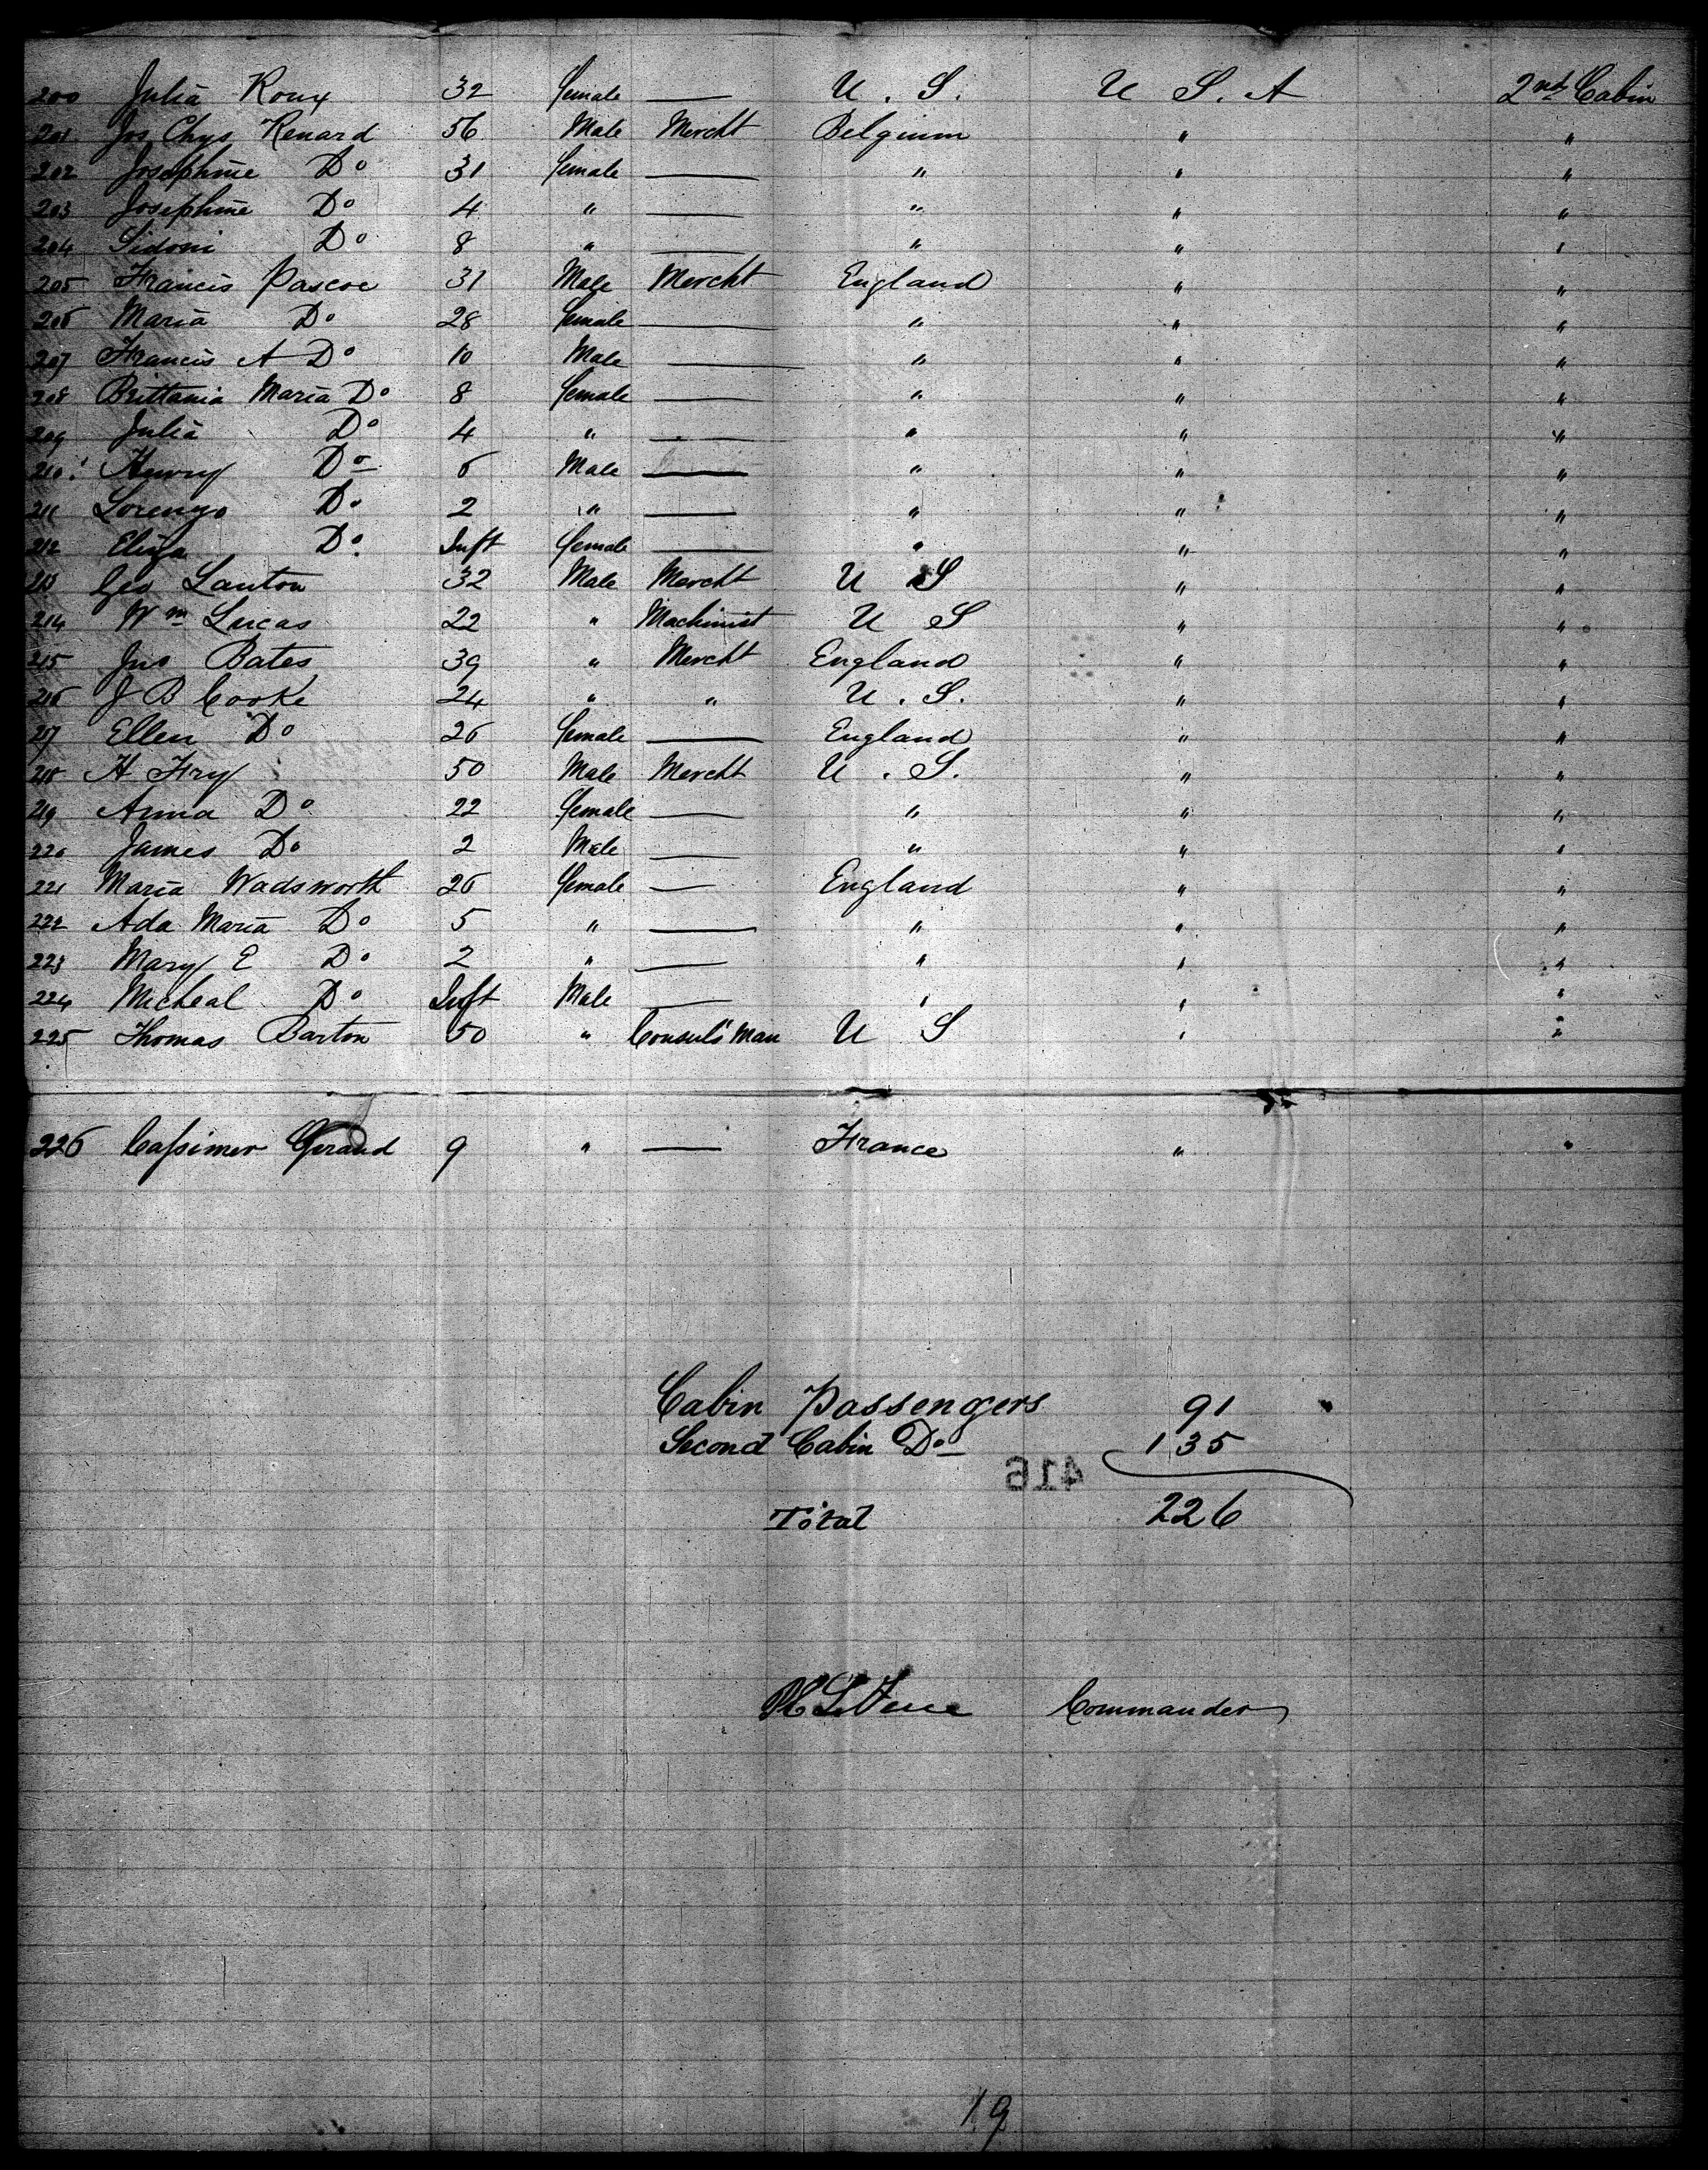 200 Julia Roux 32 female — U. S. U S. A 2nd Cabin
201 Jos Chys Renard 56 Male Mercht Belgium " "
202 Josephine Do 31 female — " " "
203 Josephine Do 4 " — " " "
204 Sidoni Do 8 " — " " "
205 Francis Pascoe 31 Male Mercht England " "
206 Maria Do 28 female — " " "
207 Francis A Do 10 Male — " " "
208 Brittania Maria Do 8 female — " " "
209 Julia Do 4 " — " " "
210 Henry Do 6 Male — " " "
211 Lorenzo Do 2 " — " " "
212 Eliza Do Inft female — " " "
213 Geo Lanton 32 Male Mercht U S " "
214 Wm Lucas 22 " Machinist U S " "
215 Jno Bates 39 " Mercht England " "
216 J B Cooke 24 " " U. S. " "
217 Ellen Do 26 female — England " "
218 H Fry 50 Male Mercht U. S. " "
219 Anna Do 22 female — " " "
220 James Do 2 Male — " " "
221 Maria Wadsworth 26 female — England " "
222 Ada Maria Do 5 " — " " "
223 Mary E Do 2 " — " " "
224 Micheal Do Inft Male — " " "
225 Thomas Barton 50 " Consul's Man U S " "
226 Cassimer Giraud 9 " — France " "
Cabin Passengers 91
Second Cabin Do 135
416
Total 226
Commander
19